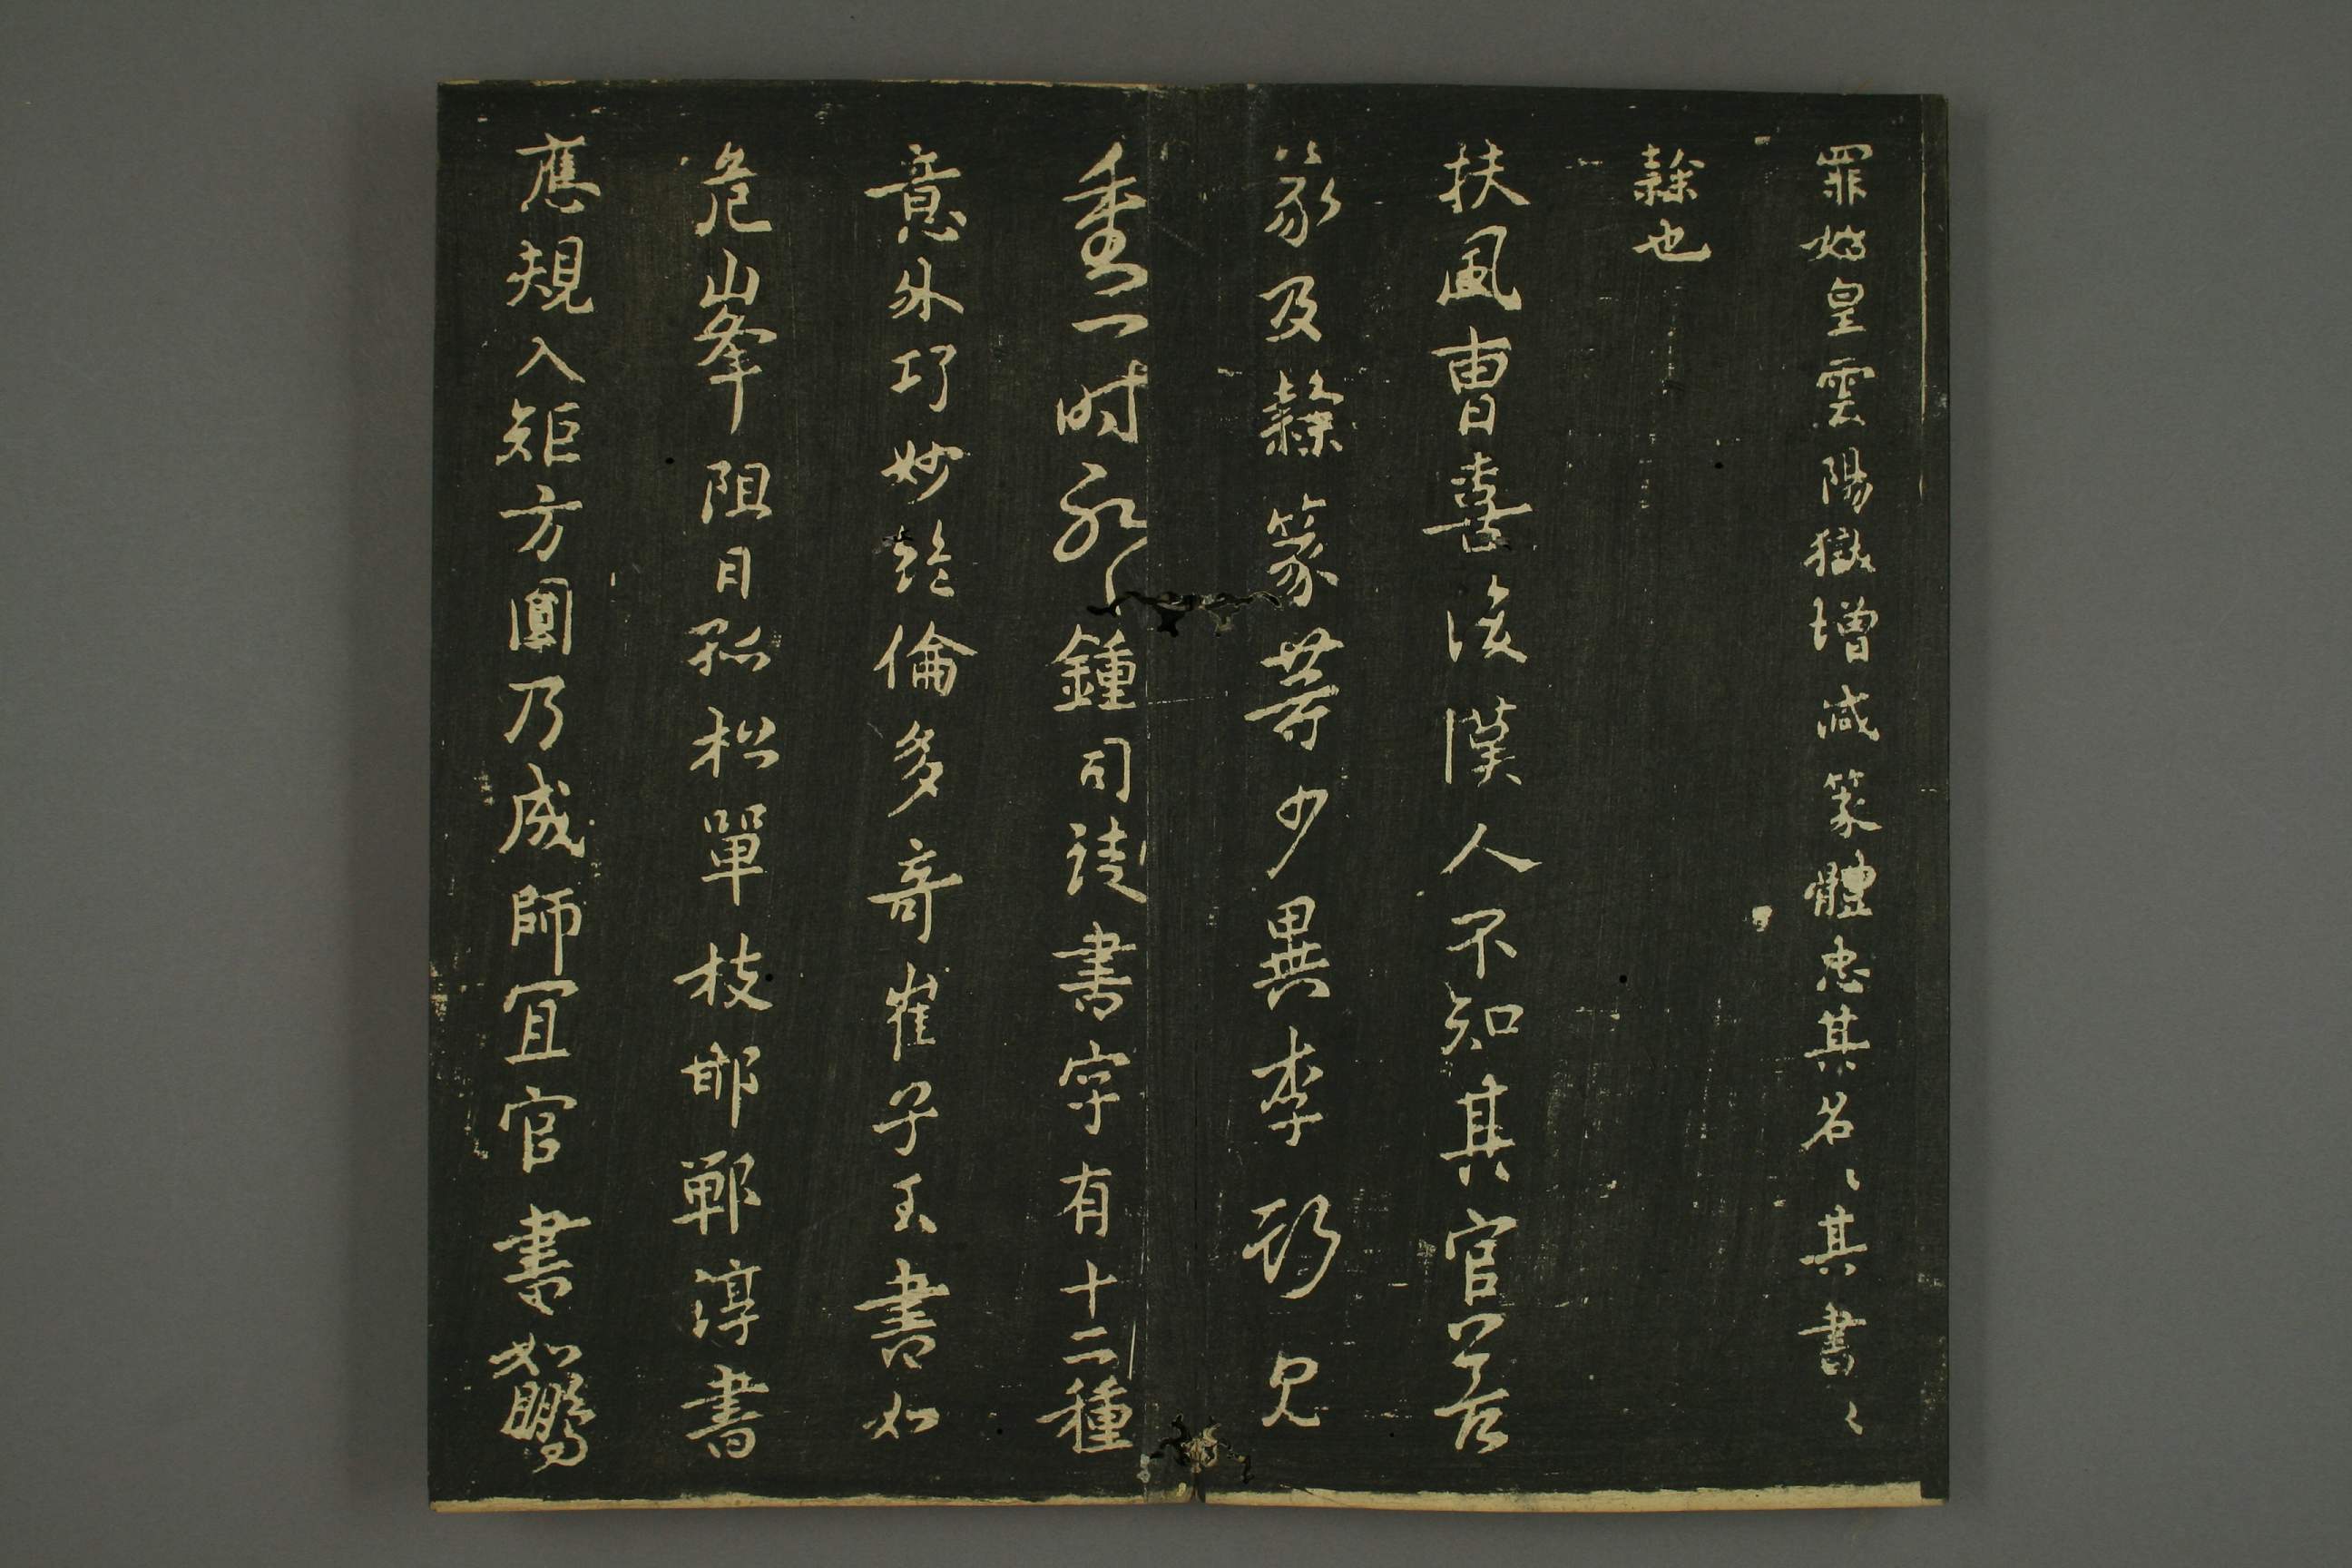 罪始皇雲陽獄增減篆體忠其名〻其書〻
隸也
扶風曹喜後漢人不知其官善
篆及隸篆等少異李斯見
重一時耳鍾司徒書字有十二種
意外巧妙絕倫多奇崔子玉書如
危山峯阻日孤松單枝邯鄲淳書
應規入矩方圓乃成師宜官書如鵬